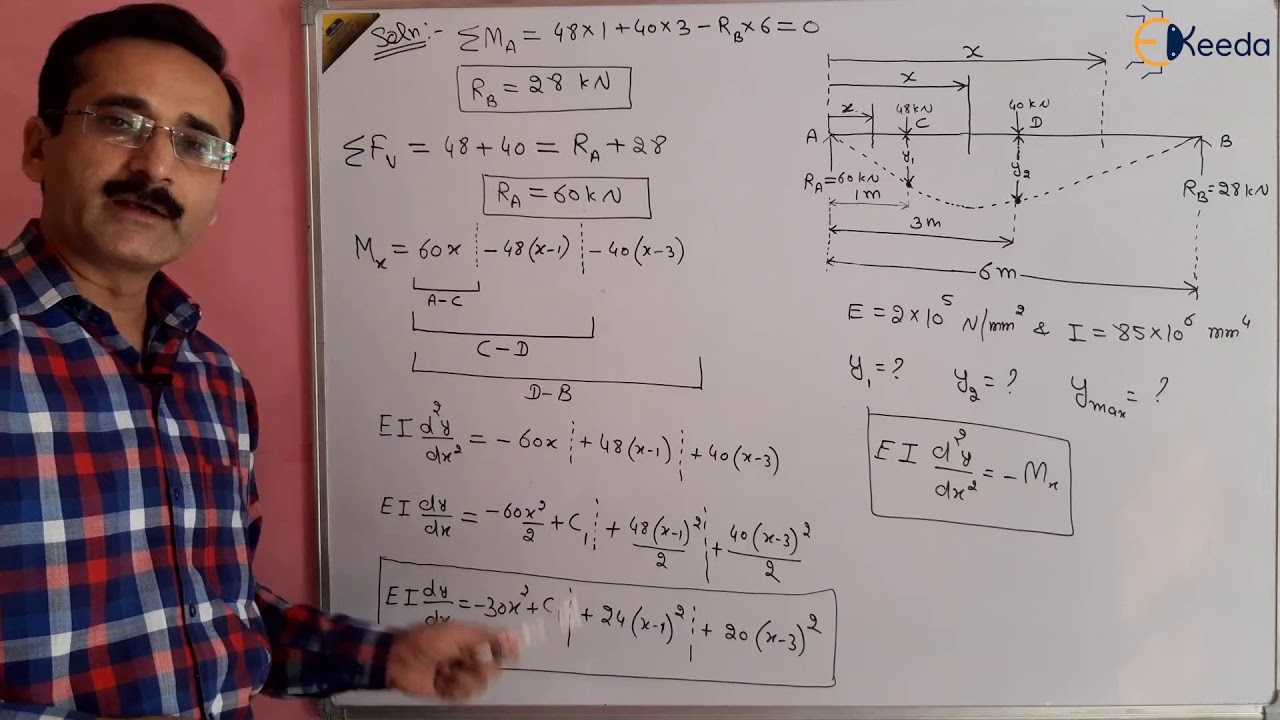 Soln:- ΣM_A = 48×1 + 40×3 - R_B×6 = 0
R_B = 28 kN
ΣF_V = 48 + 40 = R_A + 28
R_A = 60 kN
M_x = 60x - 48(x-1) - 40(x-3)
A-C
C-D
D-B
EI d²y/dx² = - 60x + 48(x-1) + 40(x-3)
EI dy/dx = -60x²/2 + C₁ + 48(x-1)²/2 + 40(x-3)²/2
EI dy/dx = -30x² + C₁ + 24(x-1)² + 20(x-3)²
EKeeda
x
x
x
48kN
40kN
A
C
D
B
y₁
y₂
R_A=60kN
R_B=28kN
1m
3m
6m
E = 2×10⁵ N/mm² & I = 85×10⁶ mm⁴
y₁ = ? y₂ = ? y_max = ?
EI d²y/dx² = - M_x